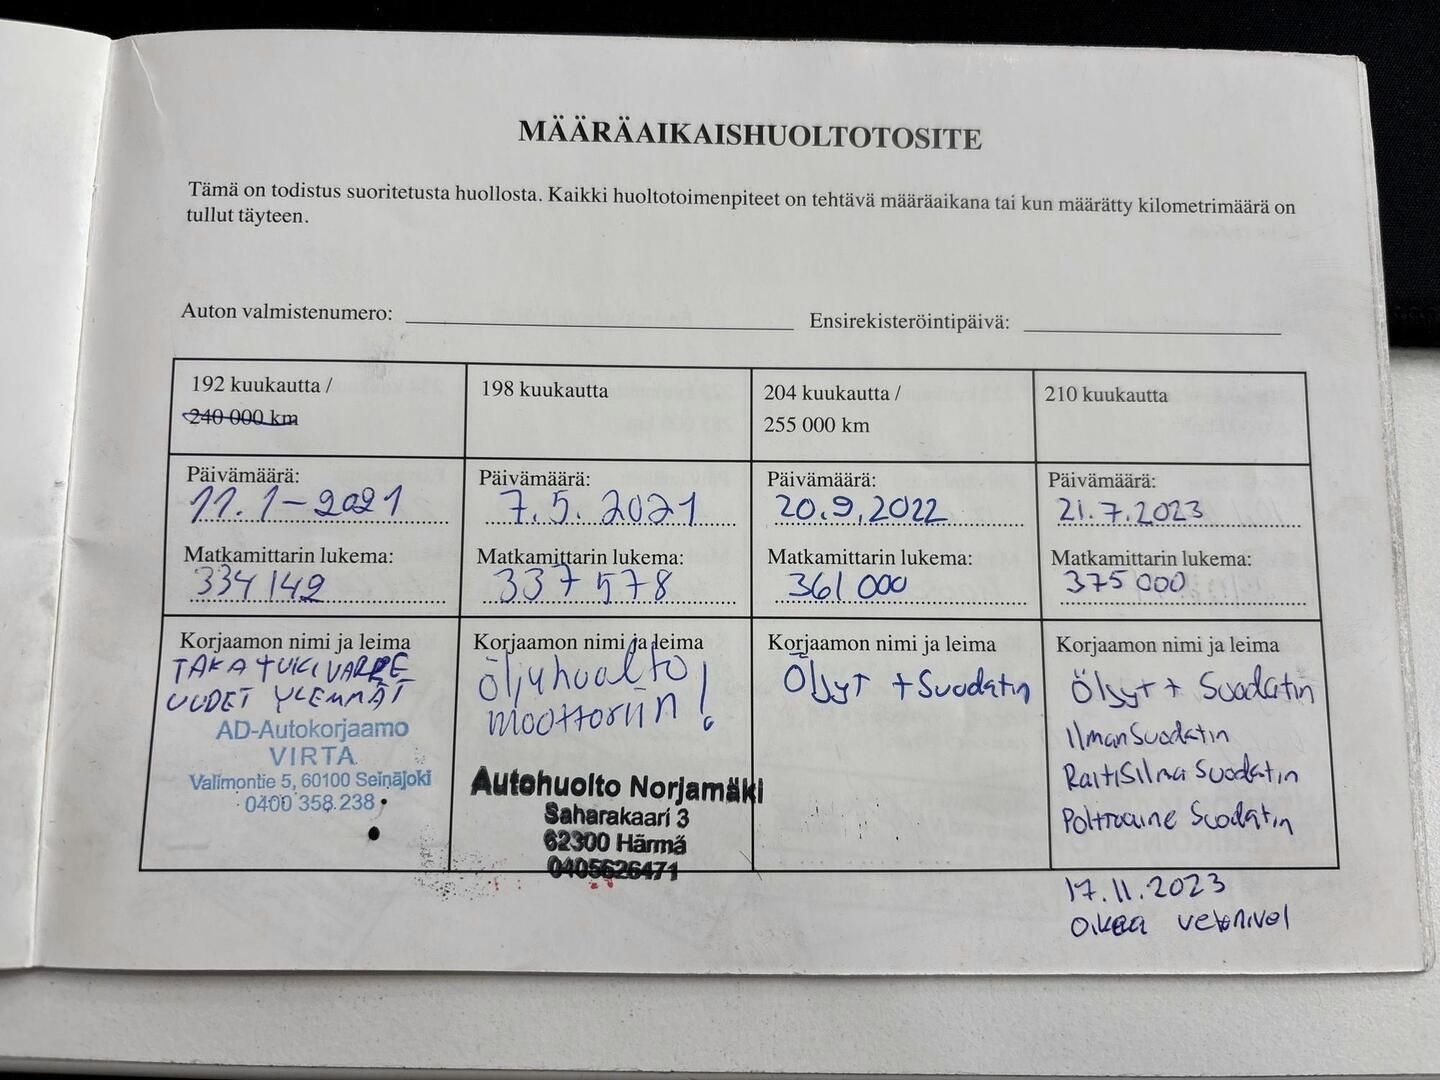 MÄÄRÄAIKAISHUOLTOTOSITE
Tämä on todistus suoritetusta huollosta. Kaikki huoltotoimenpiteet on tehtävä määräaikana tai kun määrätty kilometrimäärä on
tullut täyteen.
Auton valmistenumero:
Ensirekisteröintipäivä:
192 kuukautta /
240 000 km
Päivämäärä:
11.1-2021
Matkamittarin lukema:
334142
Korjaamon nimi ja leima
TAKATUKIVARRE
UUDET YLEMMÄT
AD-Autokorjaamo
VIRTA
Valimontie 5, 60100 Seinäjoki
0400 358 238
198 kuukautta
Päivämäärä:
7.5.2021
Matkamittarin lukema:
337 578
Korjaamon nimi ja leima
öljyhuolto
moottoriin!
Autohuolto Norjamäki
Saharakaari 3
62300 Härmä
0405626471
204 kuukautta /
255 000 km
Päivämäärä:
20.9.2022
Matkamittarin lukema:
361 000
Korjaamon nimi ja leima
Öljyt + Suodatin
210 kuukautta
Päivämäärä:
21.7.2023
Matkamittarin lukema:
375 000
Korjaamon nimi ja leima
Öljyt + Suodatin
Ilmansuodatin
Raitisilma Suodatin
Polttoaine Suodatin
17.11.2023
Oikea vetonivel